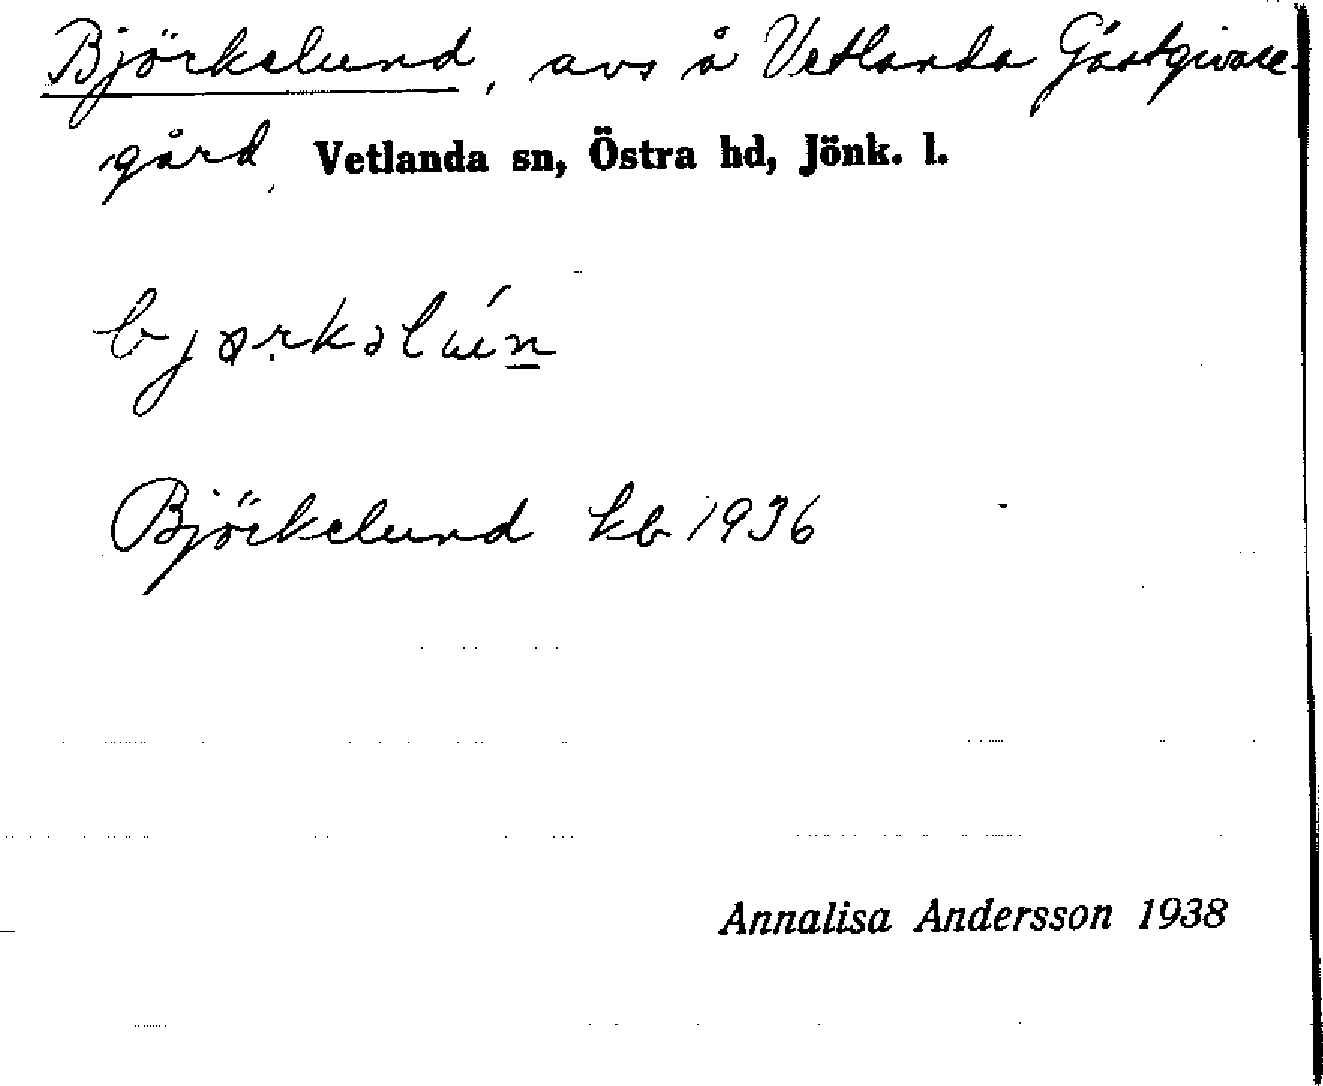 Björkelund, avs å Vetlanda Gästgivare-
gård, Vetlanda sn, Östra hd, Jönk. l.
Björkelund kb 1936
Annalisa Andersson 1938